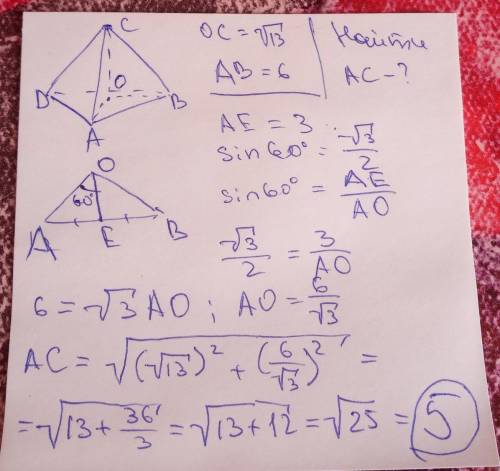 C
O
D
B
A
OC = √13
AB = 6
Найти
AC - ?
O
60°
A
E
B
AE = 3
sin60° = √3/2
sin60° = AE/AO
√3/2 = 3/AO
6 = √3 AO ; AO = 6/√3
AC = √((√13)² + (6/√3)²) =
= √(13 + 36/3) = √(13+12) = √25 = 5